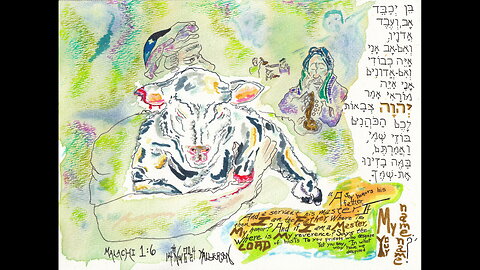 בֵּן יְכַבֵּד
אָב, וְעֶבֶד
אֲדֹנָיו,
וְאִם-אָב אָנִי
אַיֵּה כְבוֹדִי
וְאִם-אֲדוֹנִים
אָנִי אַיֵּה
מוֹרָאִי אָמַר
יְהוָה צְבָאוֹת
לָכֶם הַכֹּהֲנִים
בּוֹזֵי שְׁמִי,
וַאֲמַרְתֶּם,
בַּמֶּה בָזִינוּ
אֶת-שְׁמֶךָ.
"A son honors his
father
And a servant his master. If
I am the Father, Where is
My honor? And if I am a Master,
Where is My reverence? Says the
LORD of hosts To you priests who despise
My name.
Yet you say, In what
despised
Your name?"
MALACHI 1:6